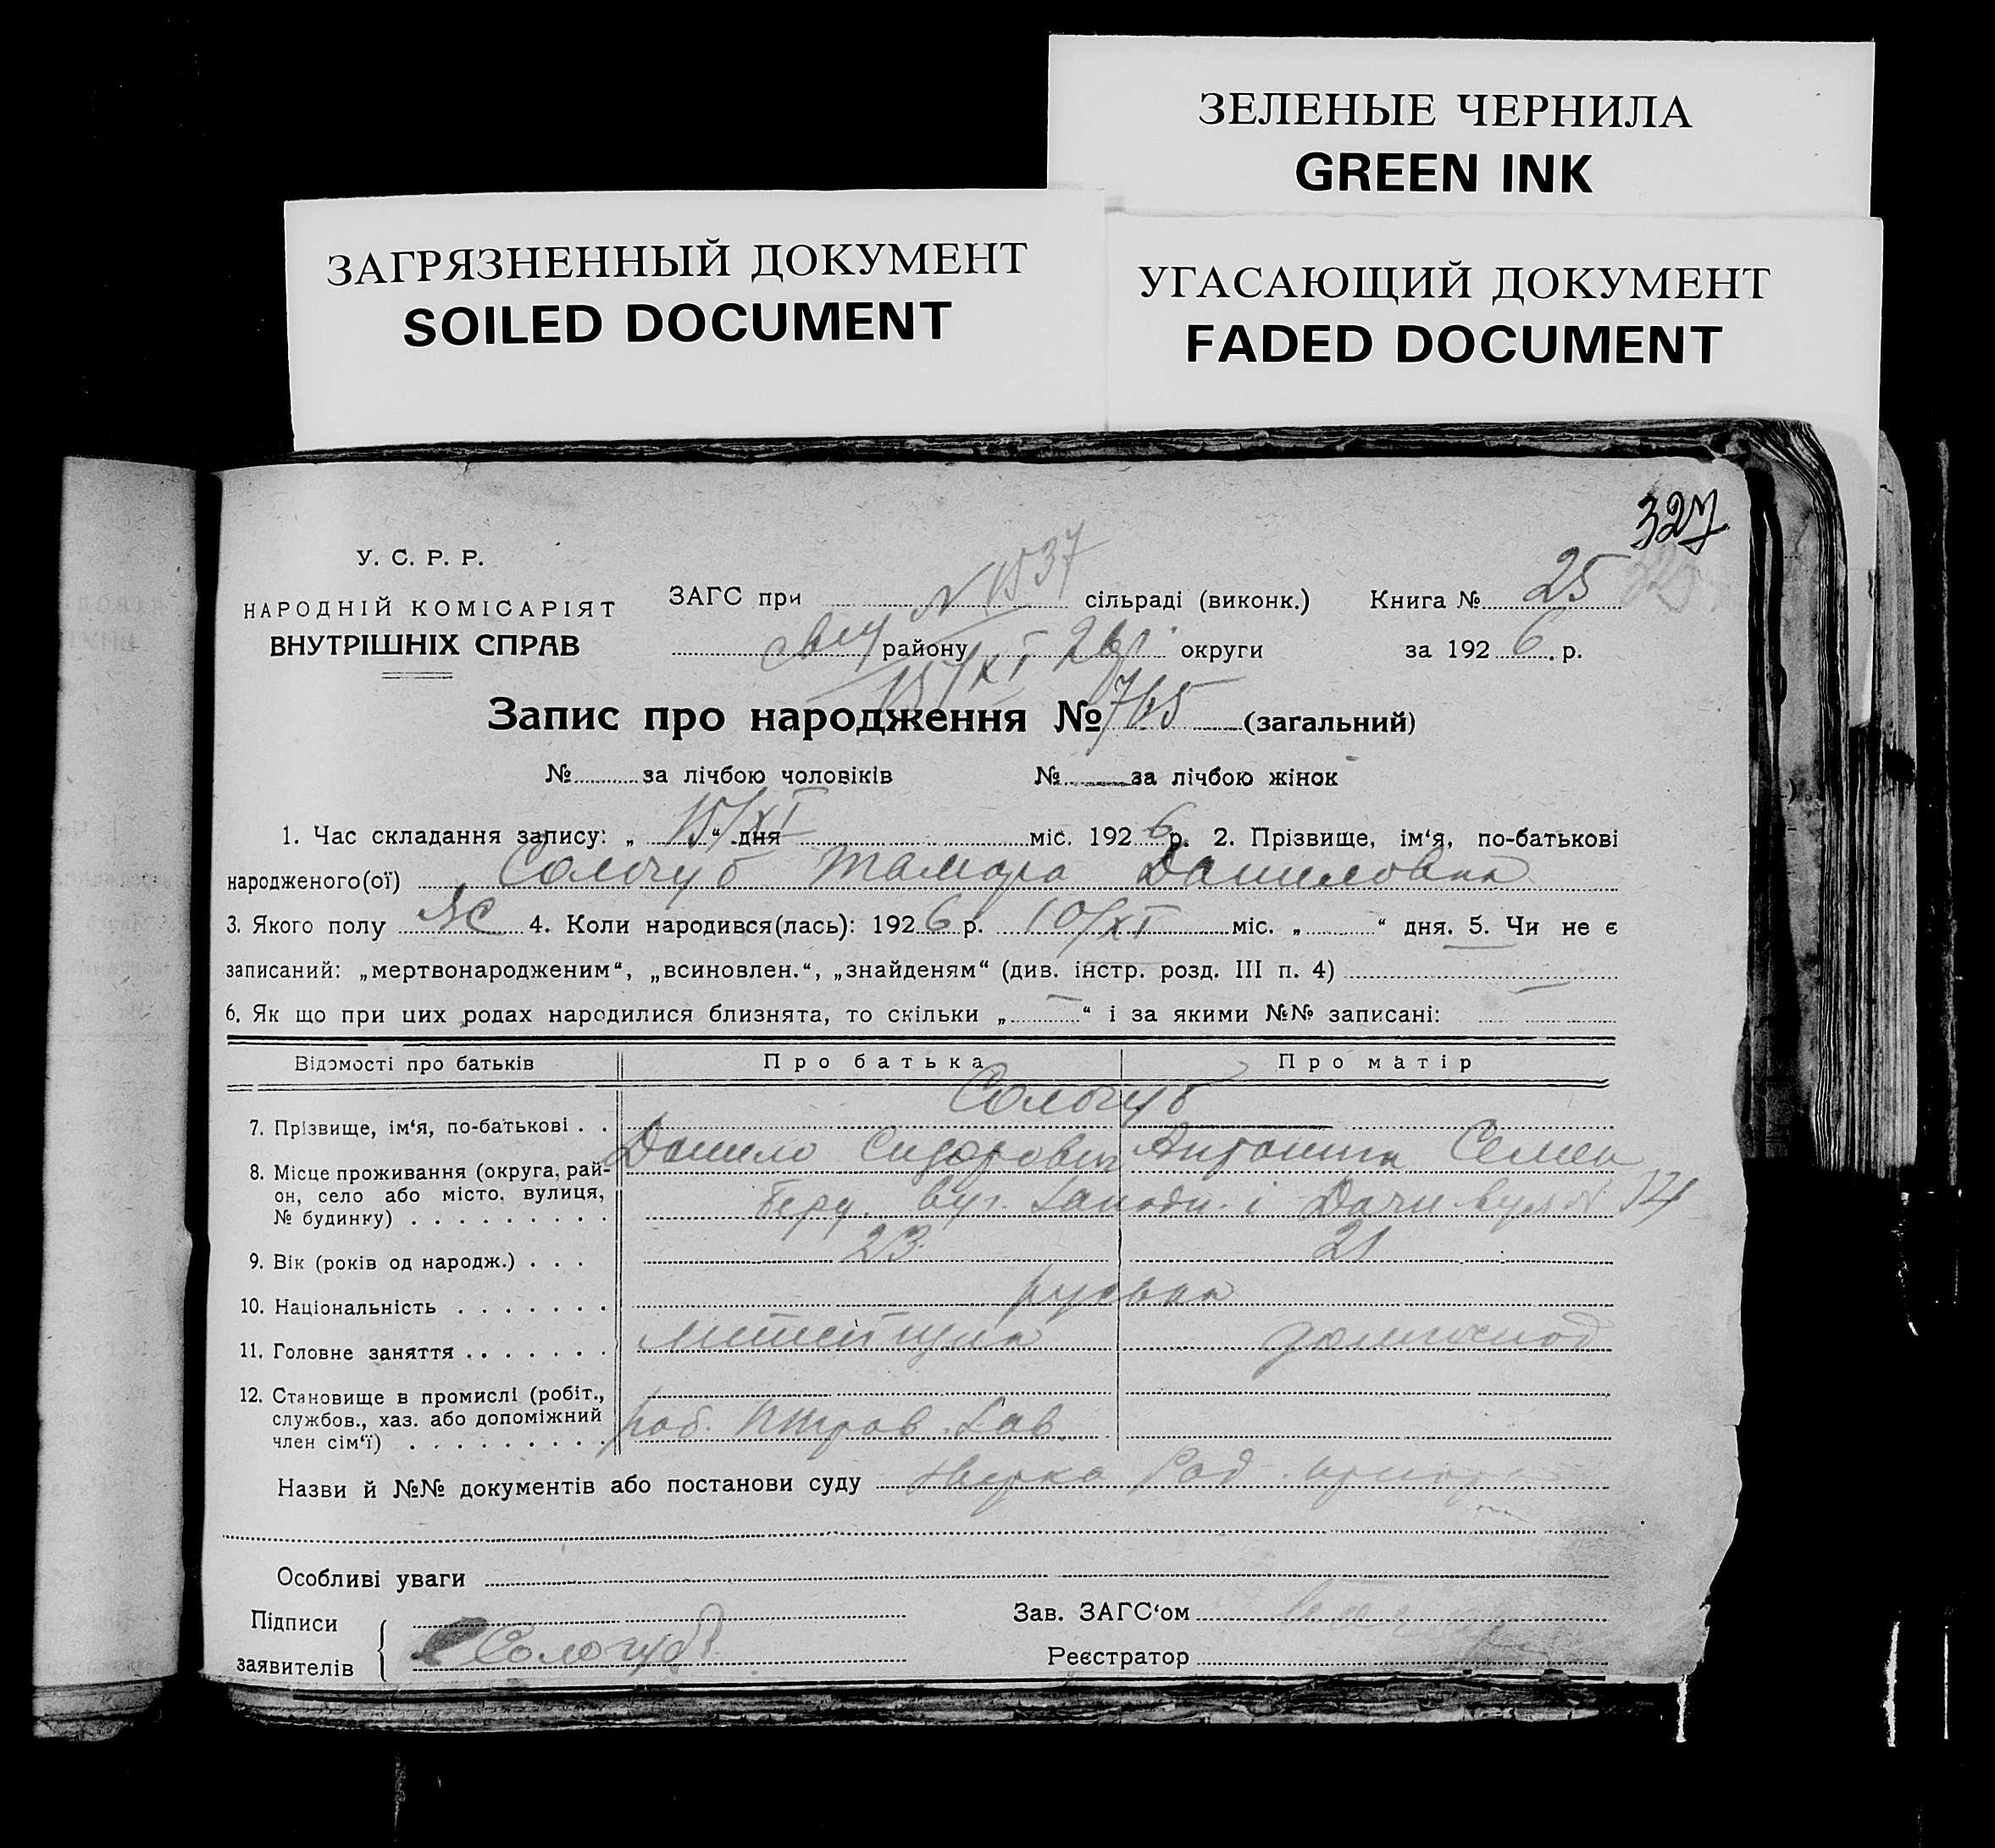 ЗЕЛЕНЫЕ ЧЕРНИЛА
GREEN INK
ЗАГРЯЗНЕННЫЙ ДОКУМЕНТ
SOILED DOCUMENT
УГАСАЮЩИЙ ДОКУМЕНТ
FADED DOCUMENT
327
У. С. Р. Р.
НАРОДНІЙ КОМІСАРІЯТ
ВНУТРІШНІХ СПРАВ
N 1537
ЗАГС при сільраді (виконк.) Книга № 25
району округи за 1926 р.
15/XI
Запис про народження № 765 (загальний)
№ за лічбою чоловіків № за лічбою жінок
1. Час складання запису: „ 15/XI “ дня міс. 1926 р. 2. Прізвище, ім‘я, по-батькові
народженого(ої) Сологуб Тамара Даниловна
3. Якого полу жс 4. Коли народився(лась): 1926 р. 10/XI міс. „ “ дня. 5. Чи не є
записаний: „мертвонародженим“, „всиновлен.“, „знайденям“ (див. інстр. розд. III п. 4)
6. Як що при цих родах народилися близнята, то скільки „ — “ і за якими №№ записані:
Відомості про батьків Про батька Про матір
Сологуб
7. Прізвище, ім‘я, по-батькові . . Данило Сидорович Антонина Семен
8. Місце проживання (округа, рай-
он, село або місто, вулиця,
№ будинку) . . . . . . . . . вул. і Дачн вул N 14
9. Вік (років од народж.) . . . 23 21
10. Національність . . . . . . . руська
11. Головне заняття . . . . . . . домгоспод
12. Становище в промислі (робіт.,
службов., хаз. або допоміжний
член сім‘ї) . . . . . . . . . роб. Петров. Зав.
Назви й №№ документів або постанови суду
Особливі уваги
Підписи Зав. ЗАГС‘ом
заявителів Сологуб Реєстратор